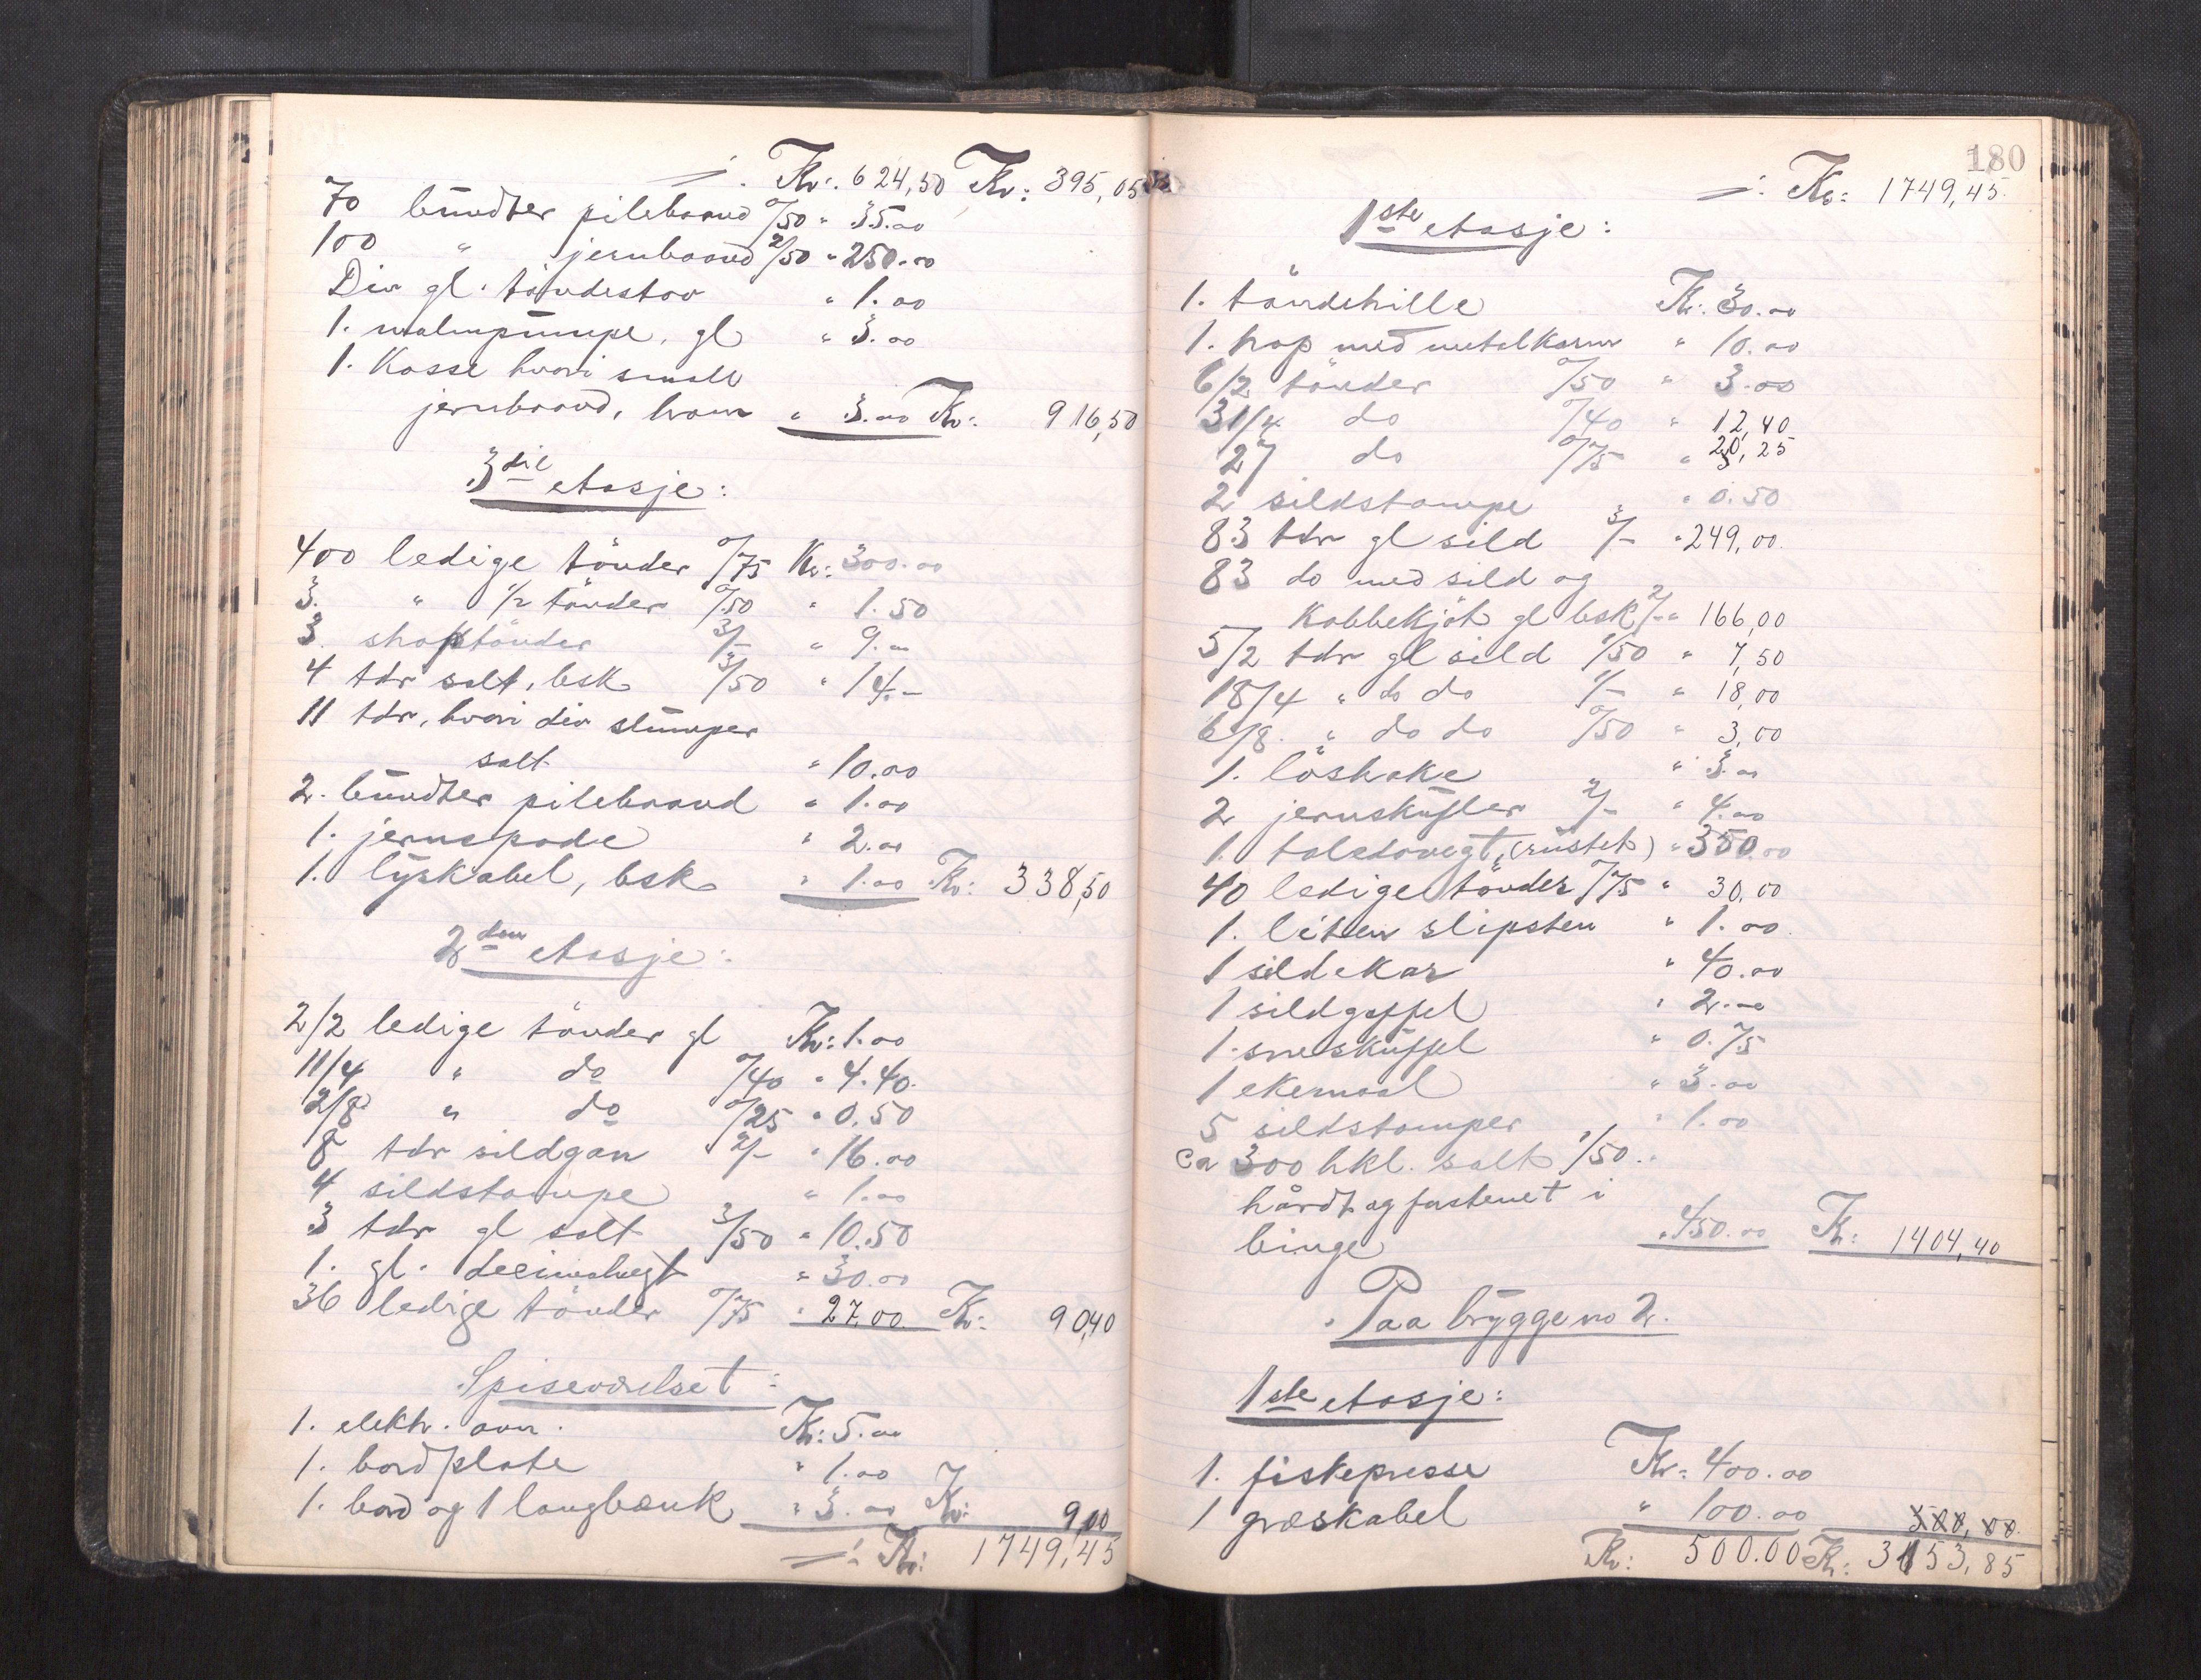 ∴ Kr: 624,50 Kr: 395,05
70 bundter pilebaand 0/50 " 35.00
100 " jernbaand 2/50 " 250.00
Div gl. töndestav " 1.00
1. malmpumpe, gl " 3.00
1. Kasse hvori smalt
jernbaand, " 3.00 Kr: 916,50
3die etasje:
400 ledige tönder 0/75 Kr: 300.00
3. " 1/2 tönder 0/50 " 1.50
3 tönder 3/- " 9.00
4 tdr salt, bsk 3/50 " 14.-
11 tdr, hvori div slumper
salt " 10.00
2. bundter pilebaand " 1.00
1. jernspade " 2.00
1. lyskabel, bsk " 1.00 Kr: 338,50
2den etasje:
2/2 ledige tönder gl Kr: 1.00
11/4 " do 0/40 " 4.40.
2/8 " do 0/25 " 0.50
8 tdr sildgan 2/- " 16.00
4 sildstampe " 1.00
3 tdr gl salt 3/50 " 10.50
1. gl. decimalvegt " 30.00
36 ledige tönder 0/75 " 27,00 Kr: 90,40
Spiseværelset:
1. elektr. ovn. Kr: 5.00
1. bordplate " 1.00
1. bord og 1 langbænk " 3.00 Kr: 9,00
∴ Kr: 1749,45
180
∴ Kr: 1749,45.
1ste etasje:
1. töndehille Kr: 30.00
1. med metalkarm " 10.00
6/2 tönder 0/50 " 3.00
31/4 do 0/40 " 12,40
27 do 0/75 " 20,25
2 sildstampe " 0.50
83 tdr gl sild 3/- " 249,00.
83 do med sild og
Kobbekjöt gl bsk 2/- " 166,00
5/2 tdr gl sild 1/50 " 7,50
18/4 " do do 1/- " 18,00
6/8. " do do 0/50 " 3,00
1. löshake " 3.00
2 jernskufler 2/- " 4.00
1. taledovegt, (rustet) " 350.00
40 ledige tönder 0/75 " 30,00
1. liten slipsten " 1.00.
1 sildekar " 40.00
1 sildgaffel " 2.00
1. sneskuffel " 0.75
1 ekernaal " 3.00
5 sildstamper " 1.00
ca 300 hkl. salt 1/50..
hårdt og fastenet i
binge " 450.00 Kr: 1404,40
Paa brygge no 2.
1ste etasje:
1. fiskepresse Kr: 400.00
1 græskabel " 100.00 500,00.
Kr: 500.00 Kr: 3153,85